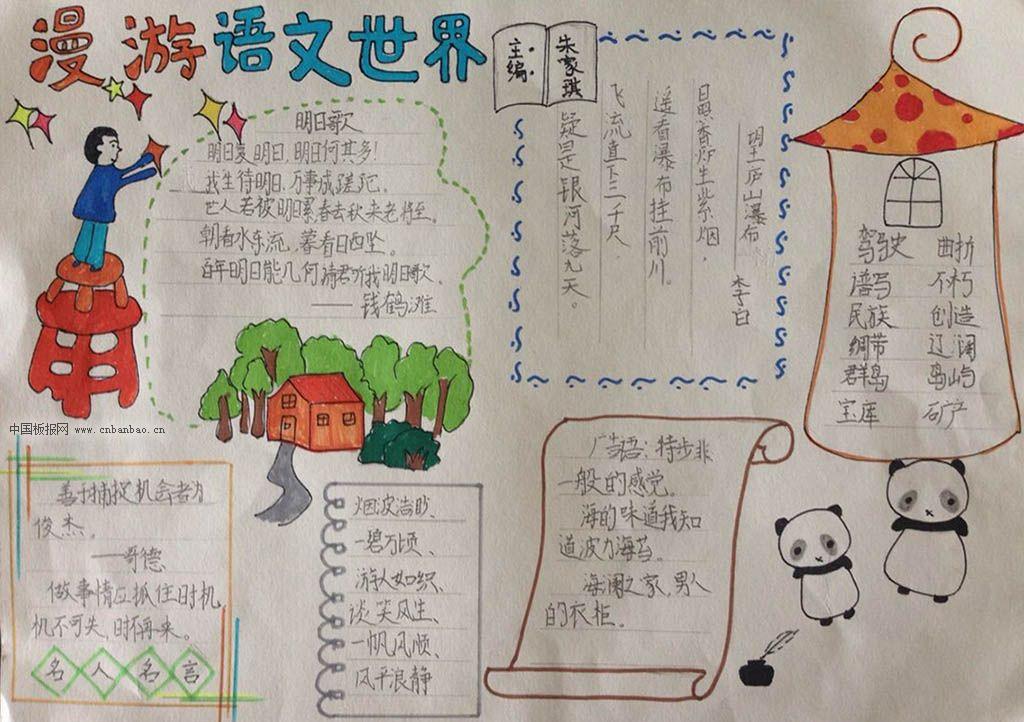 漫游语文世界
主编:
朱家琪
明日歌
明日复明日,明日何其多!
我生待明日,万事成蹉跎。
世人若被明日累,春去秋来老将至。
朝看水东流,暮看日西坠。
百年明日能几何,请君听我明日歌。
——钱鹤滩
望庐山瀑布
李白
日照香炉生紫烟,
遥看瀑布挂前川。
飞流直下三千尺,
疑是银河落九天。
驾驶 曲折
谱写 不朽
民族 创造
绸带 辽阔
群岛 岛屿
宝库 矿产
中国板报网 www.cnbanbao.cn
善于捕捉机会者为
俊杰。
—哥德
做事情应抓住时机,
机不可失,时不再来。
名人名言
烟波浩眇、
一碧万顷、
游人如织、
谈笑风生、
一帆风顺、
风平浪静
广告语:特步非
一般的感觉。
海的味道我知
道波力海苔。
海澜之家,男人
的衣柜。